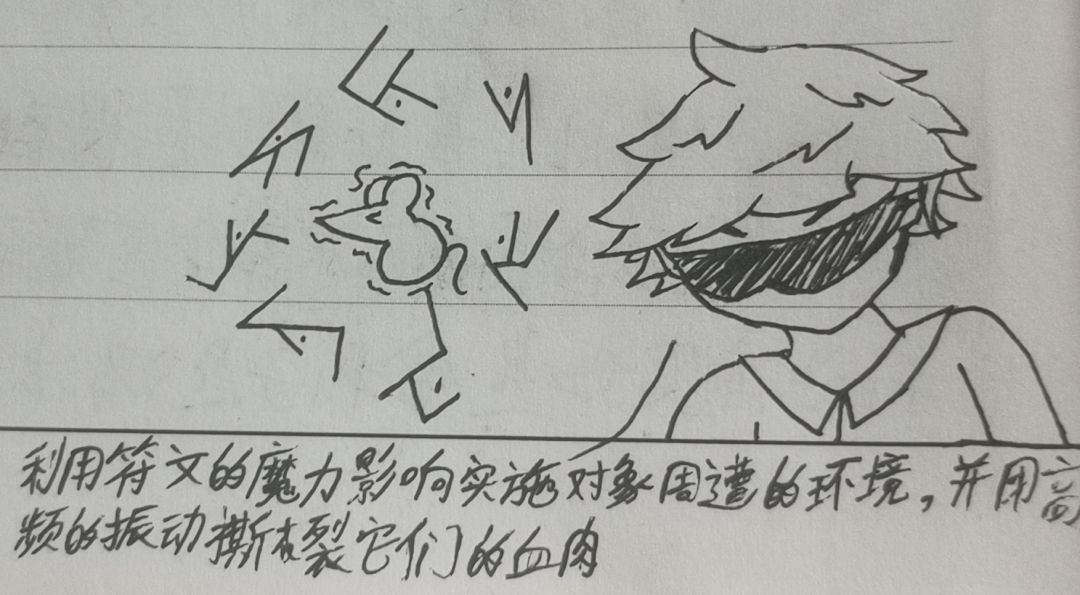 利用符文的魔力影响实施对象周遭的环境，并用高
频的振动撕裂它们的血肉